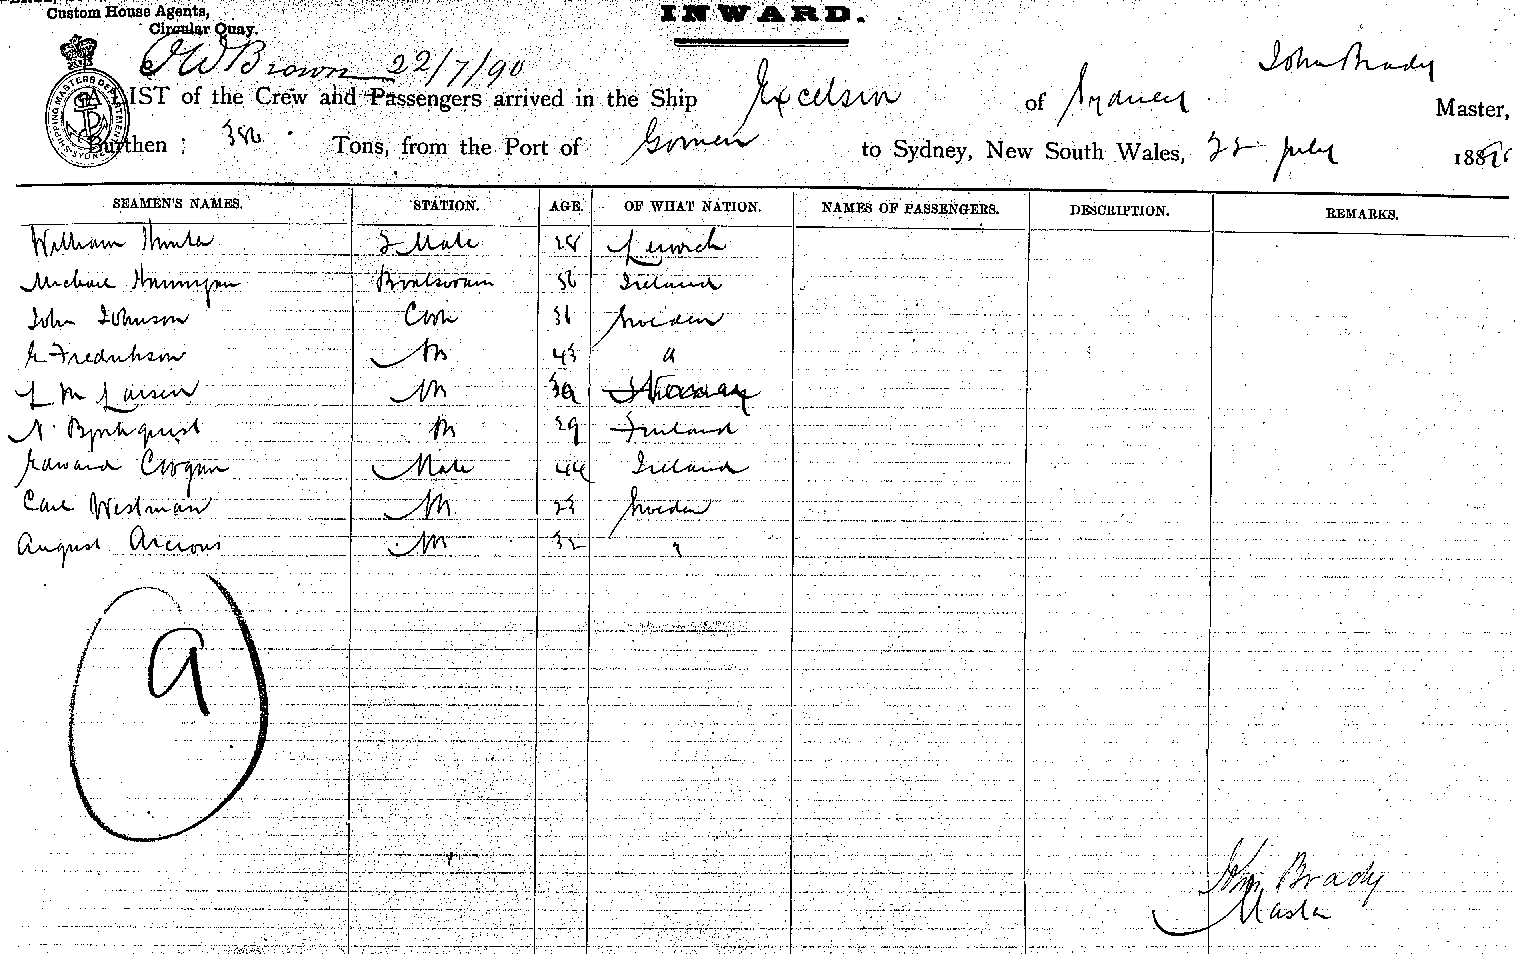 Custom House Agents,
Circular Quay.
INWARD.
Brown 22/7/90
John Brady
LIST of the Crew and Passengers arrived in the Ship Excelsior of Sydney Master,
Burthen : 386 Tons, from the Port of Gomen to Sydney, New South Wales, 22 July 1890
SEAMEN'S NAMES. STATION. AGE. OF WHAT NATION. NAMES OF PASSENGERS. DESCRIPTION. REMARKS.
William Hunter 2 Mate 28 Lerwich
Michael Hannigan Boatswain 36 Ireland
John Johnson Cook 36 Sweden
Fredrikson AB 43 "
L M Larsen AB
N. AB 29 Finland
Edward Coogan Mate 44 Ireland
Carl Westman AB 23 Sweden
August AB 32 "
9
John Brady
Master